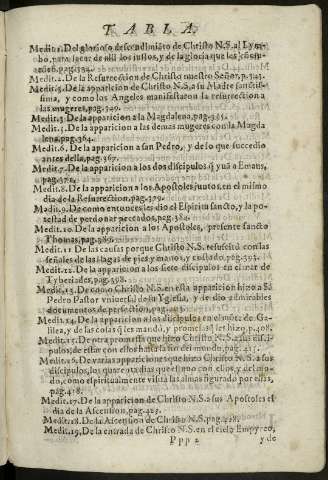 TABLA.
Medit.1. Del glorioso descendimiẽto de Christo N.S. al Lym-
bo, para sacar de alli los iustos, y de la gloria que les
pag.334.
Medit.2. De la Resurreccion de Christo nuestro Señor, p.343.
De la aparicion de Christo N.S. a su Madre sanctis-
sima, y como los Angeles manifestaron la resurreccion a
las mugeres, pag.349.
De la aparicion a la Magdalena, pag.355.
Medit.5. De la aparicion a las demas mugeres con la Magda
lena, pag.364.
Medit.6. De la aparicion a san Pedro, y de lo que succedio
antes della, pag.367.
Medit.7. De la aparicion a los dos discipulos q̃ yuã a Emaus,
Medit.8. De la aparicion a los Apostoles juntos, en el mismo
dia de la Resurreccion, pag.379.
Medit.9. De como entonces les dio el Espiritu sancto, y la po-
testad de perdonar peccados, pag.384.
Medit.10. De la aparicion a los Apostoles, presente sancto
Thomas, pag.387.
Medit.11. De las causas porque Christo N.S. resuscitò con las
señales de las llagas de pies y manos, y costado, pag.393.
Medit.12. De la aparicion a los siete discipulos en el mar de
Tyberiades, pag.398.
Medit.13. De como Christo N.S. en esta aparicion hizo a Sã
Pedro Pastor vniuersal de su Yglesia, y le dio admirables
documentos de perfeccion, pag.403.
Medit.14. De la aparicion a los discipulos en el mõte de Ga-
lilea, y de las cosas q̃ les mandó, y promessas q̃ les hizo, p.408.
Medit.15. De otra promessa que hizo Christo N.S. a sus disci-
pulos, de estar con ellos hasta la fin del mundo, pag.415.
Medit.16. De varias apariciones que hizo Christo N.S. a sus
discipulos, los quarenta dias que viuio con ellos, y del mo-
do, como espiritualmente visita las almas figurado por estas,
pag.418.
Medit.17. De la aparicion de Christo N.S. a sus Apostoles el
dia de la Ascension, pag.423.
Medit.18. De la Ascension de Christo N.S. pag.428.
Medit.19. De la entrada de Christo N.S. en el cielo Empyreo,
Ppp 2 y de